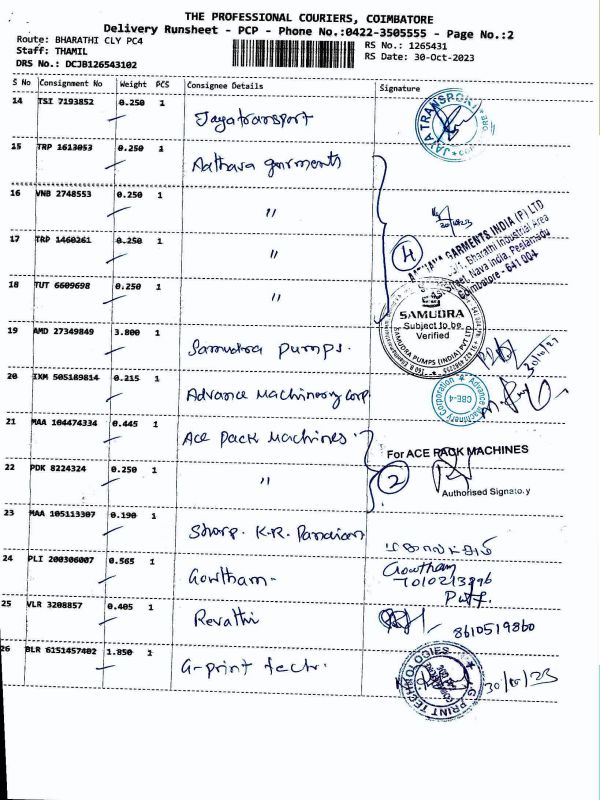 THE PROFESSIONAL COURIERS, COIMBATORE
Delivery Runsheet - PCP - Phone No.:0422-3505555 - Page No.:2
Route: BHARATHI CLY PC4
RS No.: 1265431
Staff: THAMIL
RS Date: 30-Oct-2023
DRS No.: DCJB126543102
S No Consignment No Weight PCS Consignee Details Signature
14 TSI 7193852 0.250 1 Jayatransport
JAYA TRANSPORT
15 TRP 1613053 0.250 1 Aathava garments
16 VNB 2748553 0.250 1 "
30/10/23
17 TRP 1460261 0.250 1 "
4
GARMENTS INDIA (P) LTD
Bharathi Industrial Area
Street, Nava India, Peelamedu
Coimbatore - 641 004
18 TUT 6609698 0.250 1 "
SAMUDRA
Subject to be
Verified
SAMUDRA PUMPS (INDIA) PVT LTD
19 AMD 27349849 3.800 1 Samudra pumps.
30/10/23
20 IXM 505189814 0.215 1 Advance Machinery Corp.
Advance Machinery Corporation
CBE-4
21 MAA 104474334 0.445 1 Ace Pack Machines
For ACE PACK MACHINES
22 PDK 8224324 0.250 1 "
2
Authorised Signatory
23 MAA 105113307 0.190 1 Sharp. K.R. Pandian
24 PLI 200306007 0.565 1 Gowtham
Gowtham
25 VLR 3208857 0.405 1 Revathi
8610519860
26 BLR 6151457402 1.850 1 G-print tech.
G PRINT TECHNOLOGIES
30/10/23